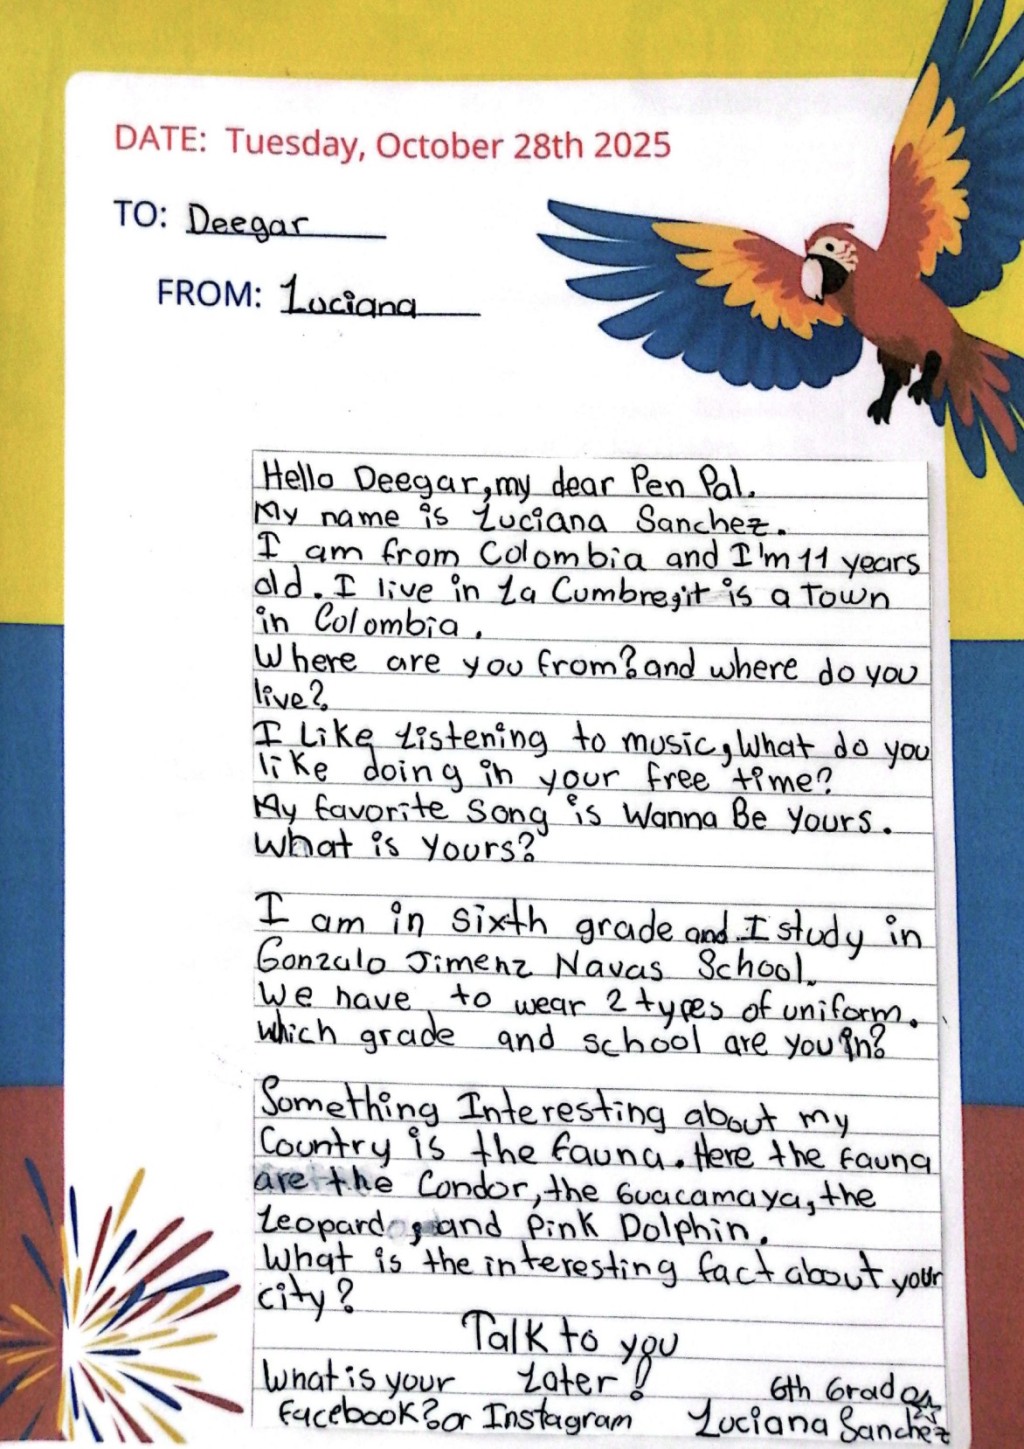 DATE: Tuesday, October 28th 2025
TO: Deegar
FROM: Luciana
Hello Deegar, my dear Pen Pal.
My name is Luciana Sanchez.
I am from Colombia and I'm 11 years
old. I live in La Cumbre, it is a Town
in Colombia.
Where are you from? and where do you
live?
I Like Listening to music, What do you
like doing in your free time?
My favorite Song is Wanna Be Yours.
What is Yours?
I am in sixth grade and I study in
Gonzalo Jimenz Navas School.
We have to wear 2 types of uniform.
Which grade and school are you in?
Something Interesting about my
Country is the fauna. Here the fauna
are the Condor, the Guacamaya, the
Leopard, and Pink Dolphin.
What is the interesting fact about your
city?
Talk to you
Later!
What is your
facebook? or Instagram
6th Grade
Luciana Sanchez